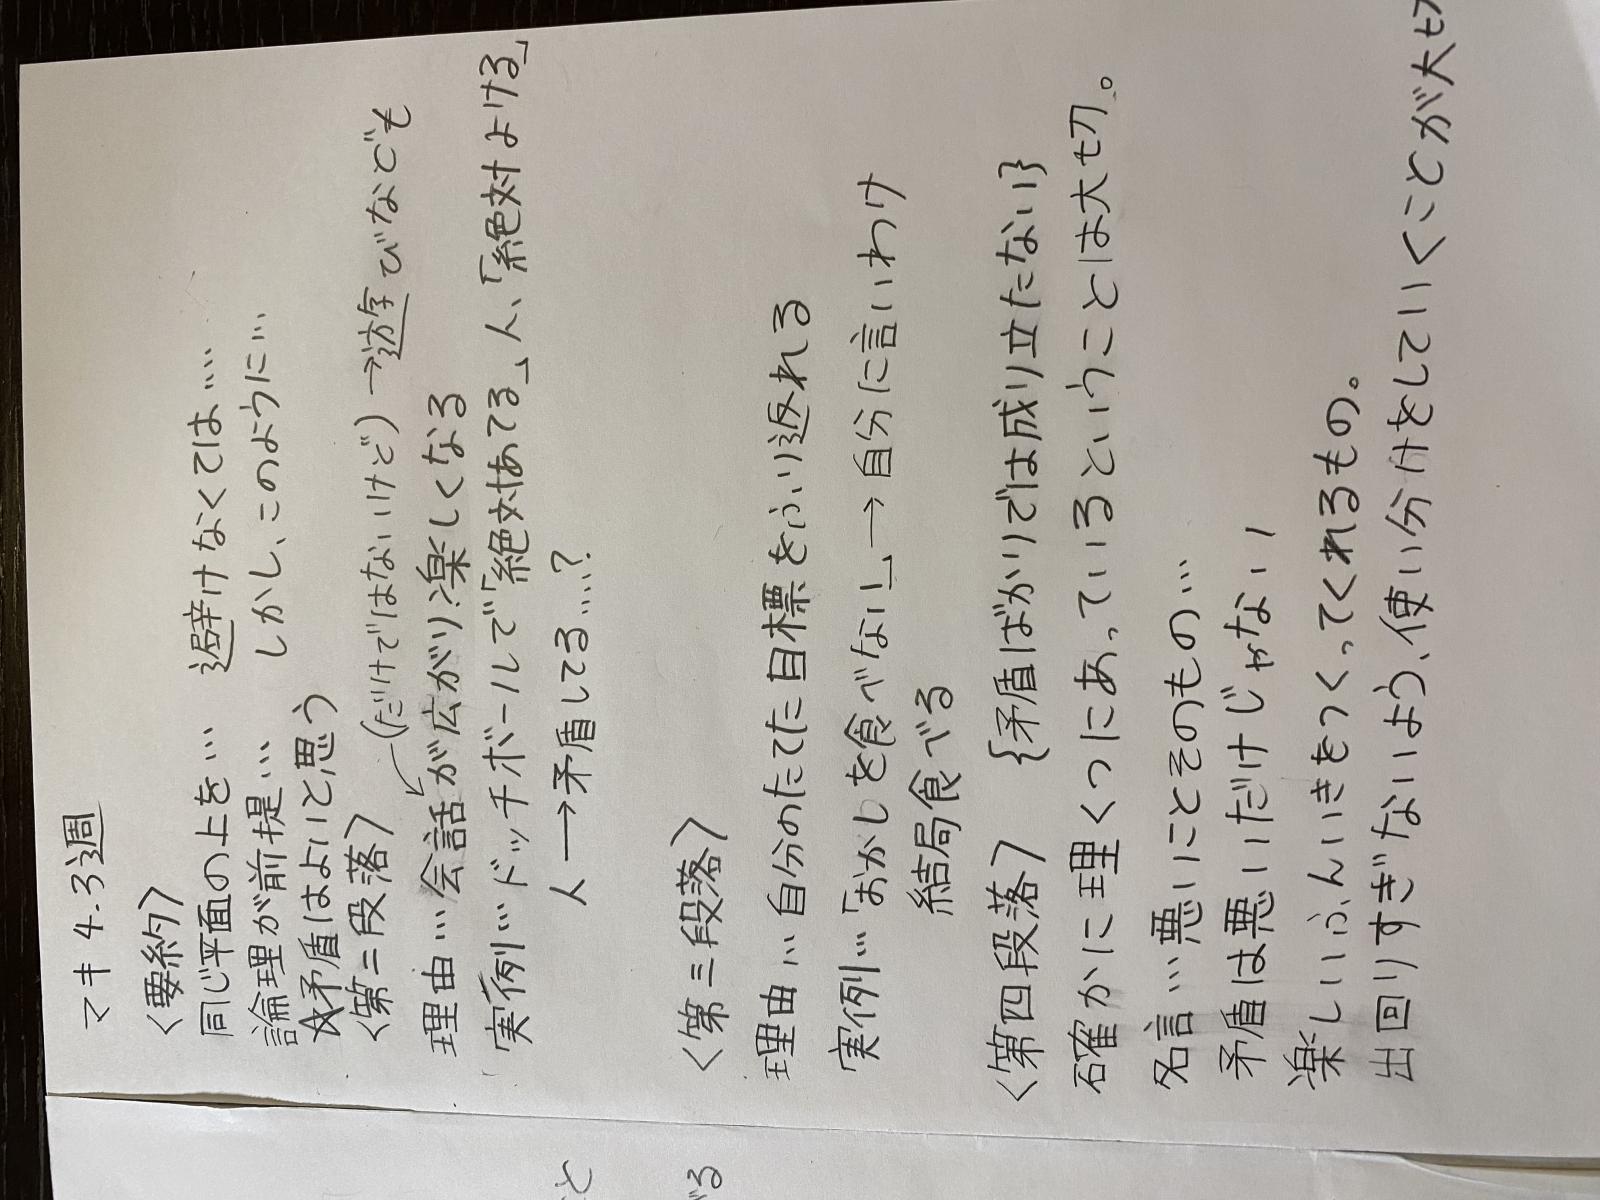 マキ 4.3週
〈要約〉
同じ平面の上を… 避けなくては….
論理が前提… しかし、このように…
☆矛盾はよいと思う
〈第二段落〉 (だけではないけど)→遊びなどでも
理由…会話が広がり楽しくなる
実例…ドッチボールで「絶対あてる」人、「絶対よける」
人→矛盾してる….?
〈第三段落〉
理由…自分のたてた目標をふり返れる
実例…「おかしを食べない!」→自分に言いわけ
結局食べる
〈第四段落〉 {矛盾ばかりでは成り立たない}
確かに理くつにあっているということは大切。
名言…悪いことそのもの…
矛盾は悪いだけじゃない!
楽しいふんいきをつくってくれるもの。
出回りすぎないよう、使い分けをしていくことが大切
と
る